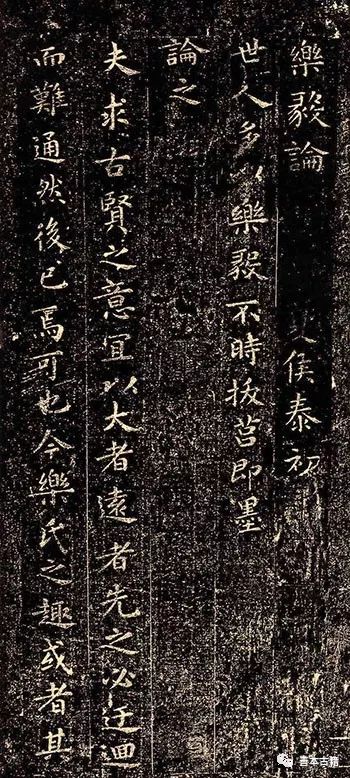 樂毅論 侯泰初
世人多以樂毅不時拔莒即墨
論之
夫求古賢之意宜以大者遠者先之必迂迴
而難通然後已焉可也今樂氏之趣或者其
善本古籍